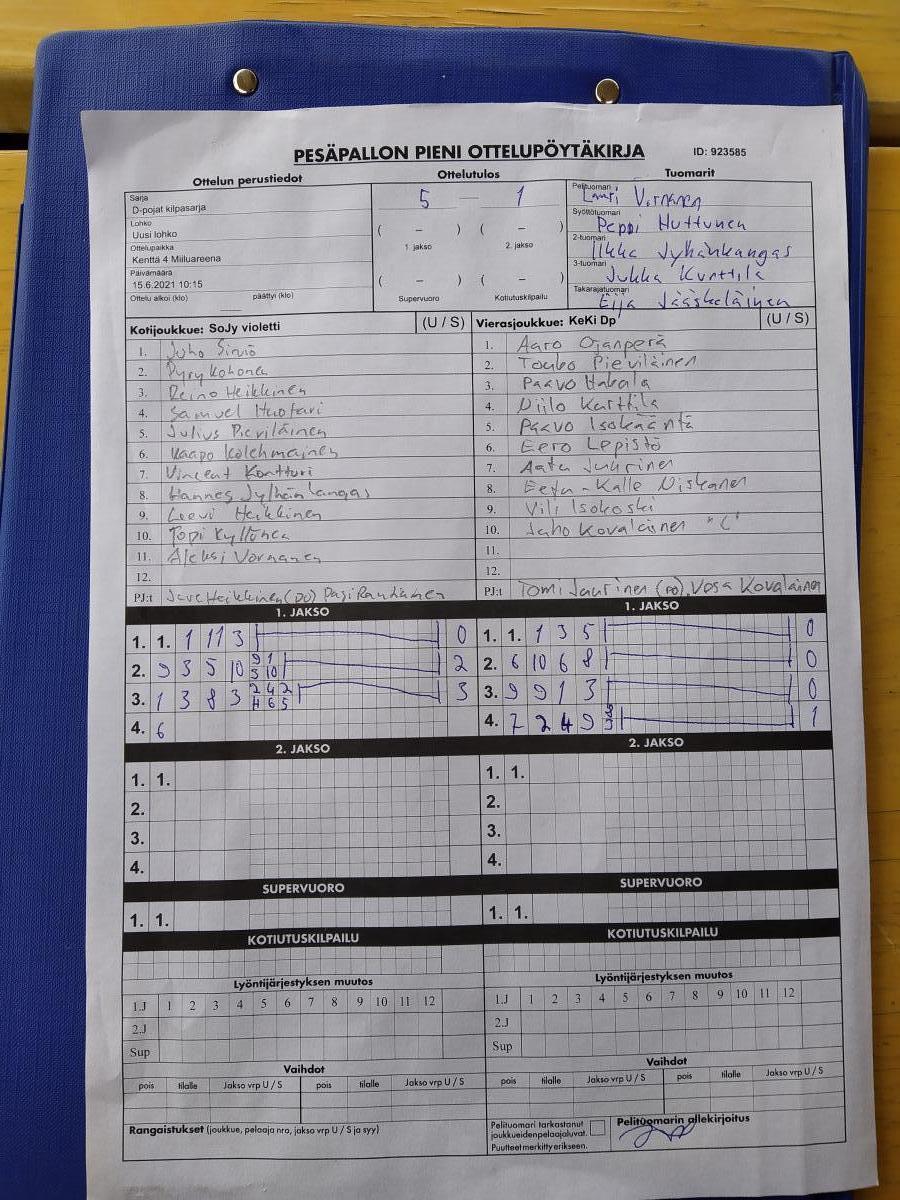 PESÄPALLON PIENI OTTELUPÖYTÄKIRJA
ID: 923585
Ottelun perustiedot
Ottelutulos
Tuomarit
Sarja
D-pojat kilpasarja
Lohko
Uusi lohko
Ottelupaikka
Kenttä 4 Miiluareena
Päivämäärä
15.6.2021 10:15
Ottelu alkoi (klo) päättyi (klo)
5 — 1
( – ) ( – )
1. jakso 2. jakso
( – ) ( – )
Supervuoro Kotiutuskilpailu
Pelituomari
Lauri Vornanen
Syöttötuomari
Peppi Huttunen
2-tuomari
Ilkka Jyhänkangas
3-tuomari
Jukka Kurttila
Takarajatuomari
Eija Jääskeläinen
Kotijoukkue: SoJy violetti (U / S)
1. Juho Sirviö
2. Pyry Kohonen
3. Reino Heikkinen
4. Samuel Huotari
5. Julius Pieviläinen
6. Kaapo Kolehmainen
7. Vincent Kontturi
8. Hannes Jylhänkangas
9. Leevi Heikkinen
10. Topi Kyllönen
11. Aleksi Vornanen
12.
PJ:t Heikkinen (PO) Pasi
Vierasjoukkue: KeKi Dp (U / S)
1. Aaro Ojanperä
2. Touko Pieviläinen
3. Paavo Hakala
4. Niilo Karttila
5. Paavo Isokääntä
6. Eero Lepistö
7. Aatu Juurinen
8. Eetu-Kalle Niskanen
9. Vili Isokoski
10. Juho Kovalainen "C"
11.
12.
PJ:t Tomi Juurinen (PO), Vesa Kovalainen
1. JAKSO
1. 1. 1 11 3 0
2. 9 3 5 10 9 1 3 10 2
3. 1 3 8 3 2 4 2 4 6 5 3
4. 6
1. JAKSO
1. 1. 1 3 5 0
2. 6 10 6 8 0
3. 9 9 1 3 0
4. 7 2 4 9 1
2. JAKSO
1. 1.
2.
3.
4.
2. JAKSO
1. 1.
2.
3.
4.
SUPERVUORO
1. 1.
SUPERVUORO
1. 1.
KOTIUTUSKILPAILU
KOTIUTUSKILPAILU
Lyöntijärjestyksen muutos
1.J 1 2 3 4 5 6 7 8 9 10 11 12
2.J
Sup
Lyöntijärjestyksen muutos
1.J 1 2 3 4 5 6 7 8 9 10 11 12
2.J
Sup
Vaihdot
pois tilalle Jakso vrp U / S pois tilalle Jakso vrp U / S
Vaihdot
pois tilalle Jakso vrp U / S pois tilalle Jakso vrp U / S
Rangaistukset (joukkue, pelaaja nro, jakso vrp U / S ja syy)
Pelituomari tarkastanut
joukkueidenpelaajaluvat.
Puutteet merkitty erikseen.
Pelituomarin allekirjoitus